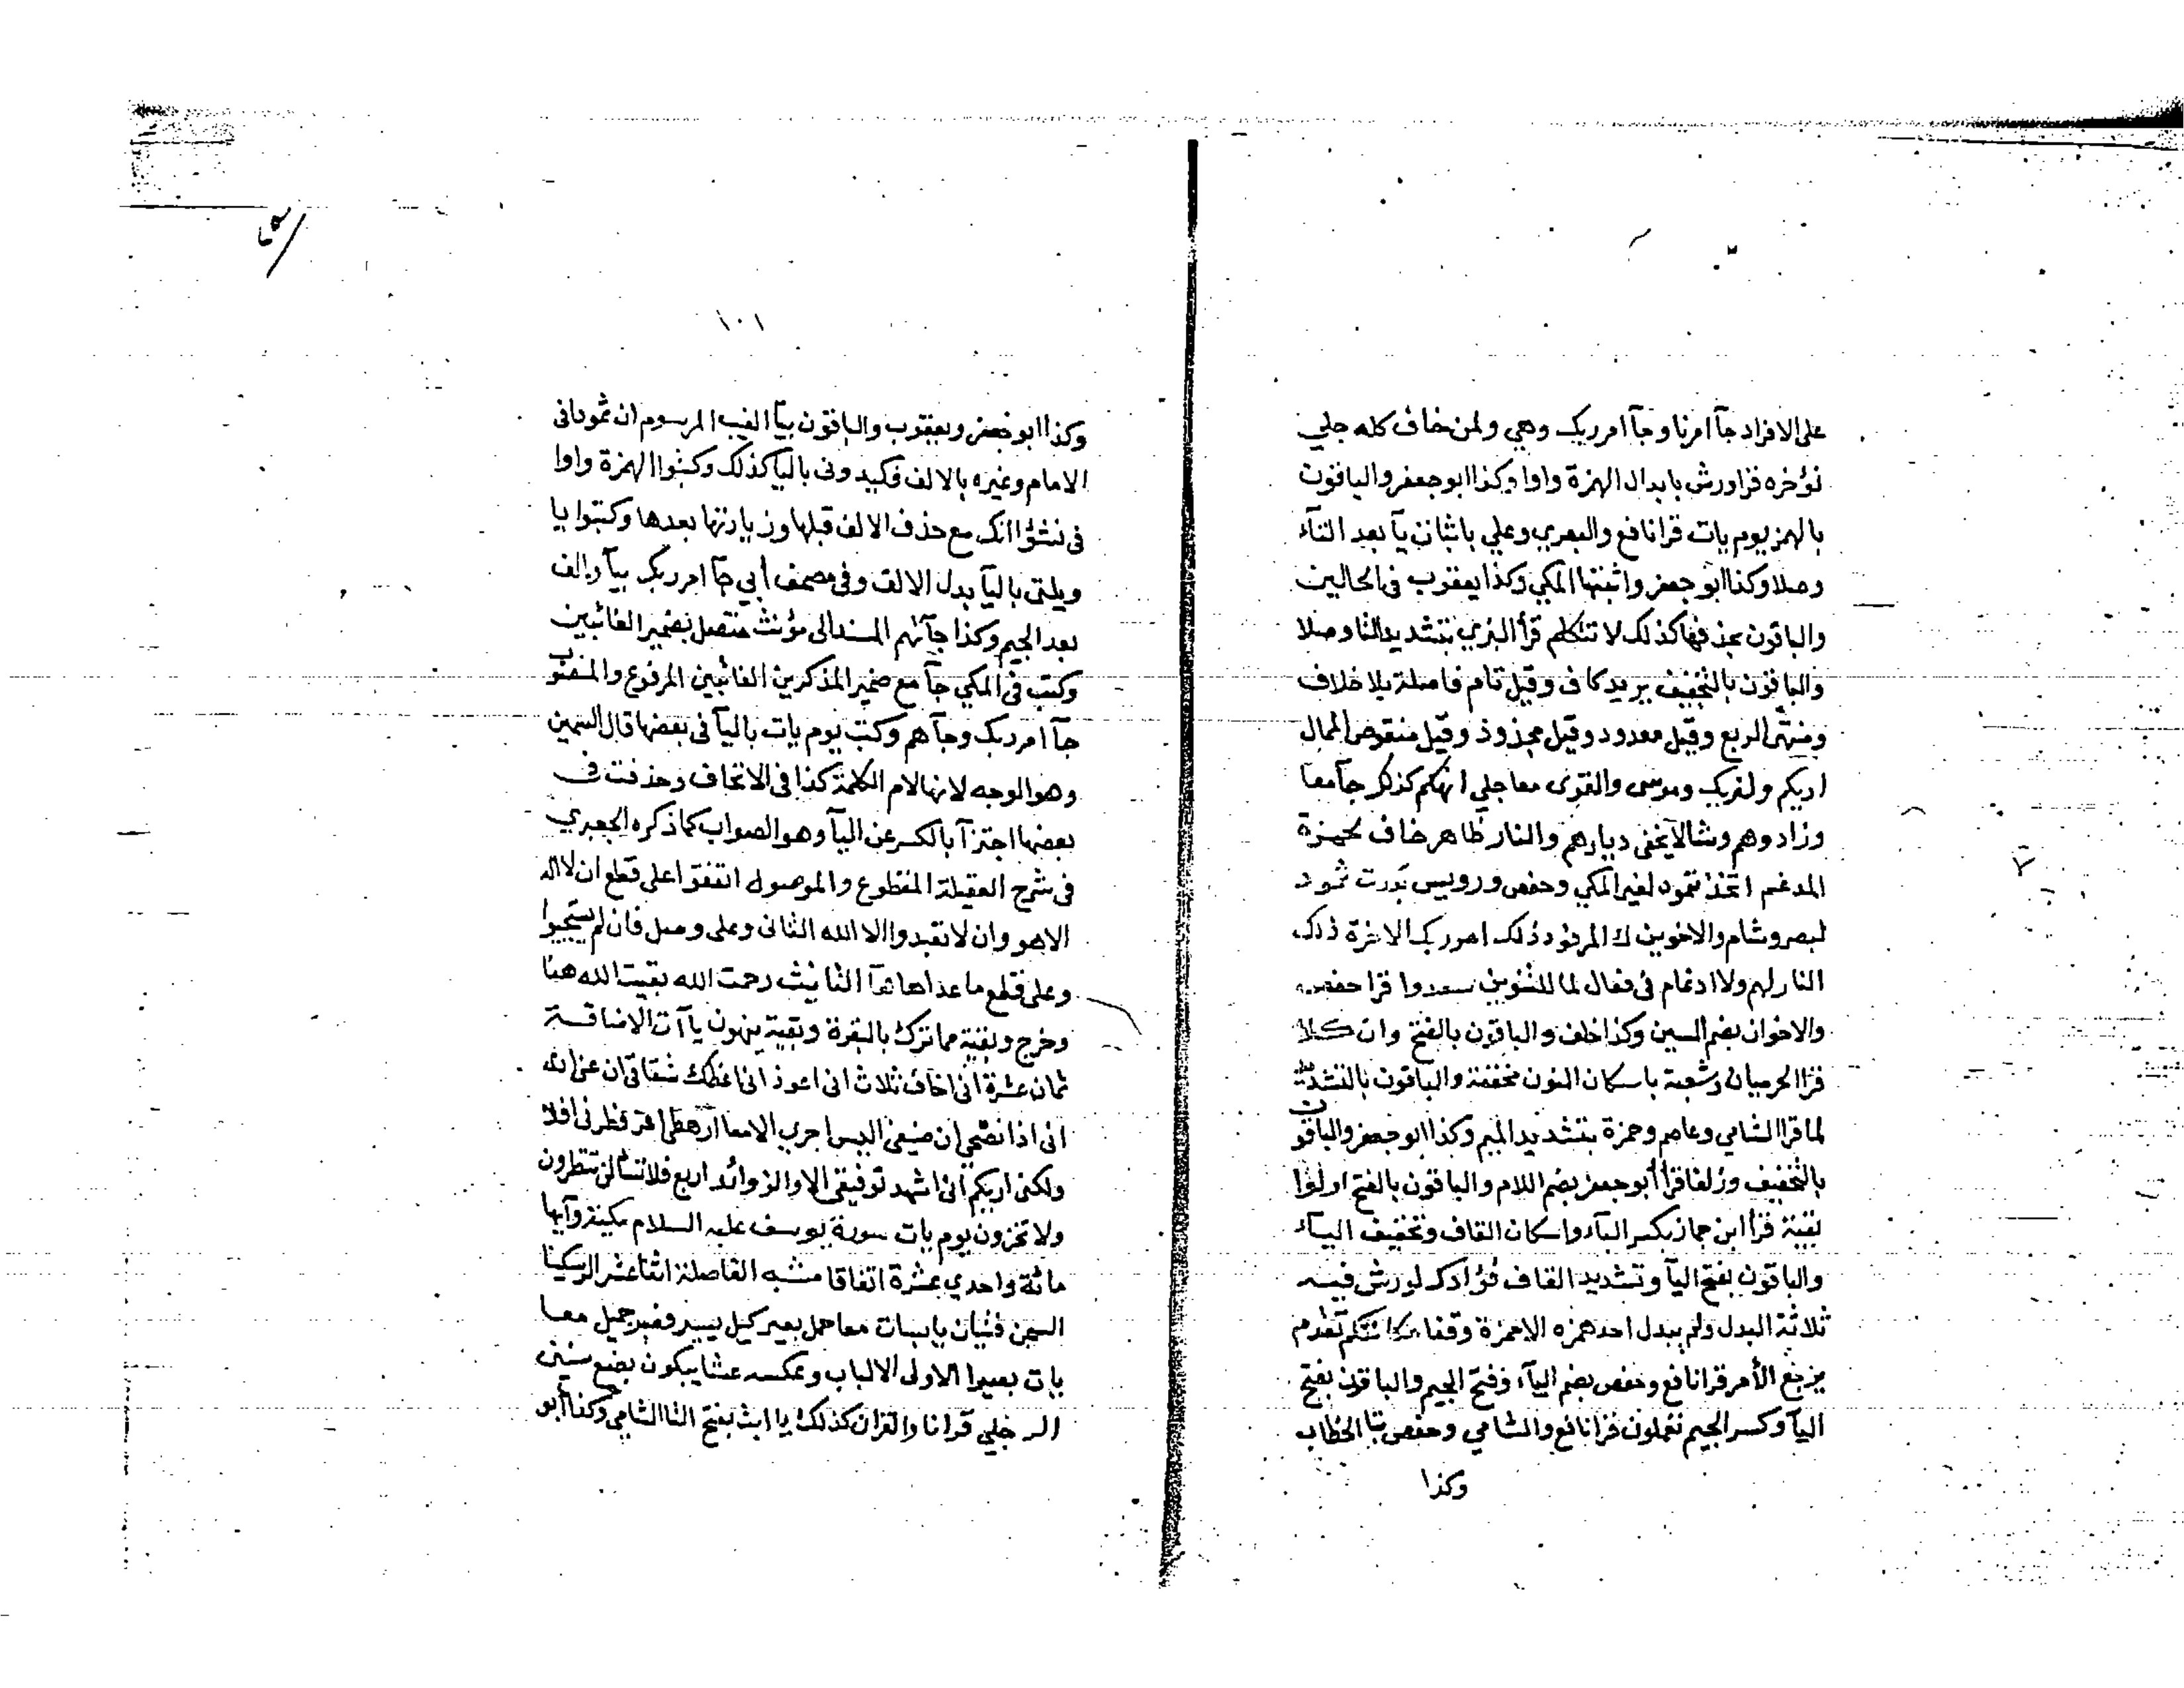 على الافراد جآ امرنا وجآ امر ربك وهي ولمن خاف كله جلي
نؤخره قرا ورش بابدال الهمزة واوا وكذا ابو جعفر والباقون
بالهمز يوم يات قرا نافع والبصري وعلي باثبات يآ بعد التآء
وصلا وكذا ابو جعفر واثبتها المكي وكذا يعقوب في الحالين
والباقون بحذفها كذلك لا تتكلم قرأ البزي بتشديد التا وصلا
والباقون بالتخفيف يريد كاف وقيل تام فاصلة بلا خلاف
ومنتهى الربع وقيل معدود وقيل مجذوذ وقيل منقوص الممال
اريكم ولنريك وموسى والقرى معا جلي انهكم كذلك جآ معا
وزادوهم وشا لا يخفى ديارهم والنار ظاهر خاف لحمزة
المدغم اتخذتموه لغير المكي وحفص ورويس بعدت ثمود
لبصر وشام والاخوين ك المرفود ذلك امر ربك الاخرة ذلك
النار لهم ولا ادغام في فعال لما للتنوين سعدوا قرا حفص
والاخوان بضم السين وكذا خلف والباقون بالفتح وان كلا
قرا الحرميان وشعبة باسكان النون مخففة والباقون بالتشديد
لما قرا الشامي وعاصم وحمزة بتشديد الميم وكذا ابو جعفر والباقون
بالتخفيف وزلفا قرأ أبو جعفر بضم اللام والباقون بالفتح اولوا
بقية قرأ ابن جماز بكسر البآء واسكان القاف وتخفيف اليآء
والباقون بفتح اليآ وتشديد القاف فؤادك لورش فيه
ثلاثة البدل ولم يبدل احد همزه الا حمزة وقفا مكانتكم تقدم
يرجع الأمر قرا نافع وحفص بضم اليآء وفتح الجيم والباقون بفتح
اليآ وكسر الجيم تعملون قرا نافع والشامي وحفص بتا الخطاب
وكذا
١٠١
وكذا ابو جعفر ويعقوب والباقون بيآ الغيب المرسوم ان ثمودا في
الامام وغيره بالالف فكيدوني باليا كذلك وكتبوا الهمزة واوا
في نشؤا انك مع حذف الالف قبلها وزيادتها بعدها وكتبوا يا
ويلتى باليآ بدل الالف وفي مصحف أبي جآ امر ربك بيآ والف
بعد الجيم وكذا جآتهم المسند الى مؤنث متصل بضمير الغائبين
وكتب في المكي جآ مع ضمير المذكرين الغائبين المرفوع والمنصوب
جآ امر ربك وجآهم وكتب يوم يات باليآ في بعضها قال السمين
وهو الوجه لانها لام الكلمة كذا في الاتحاف وحذفت في
بعضها اجتزآ بالكسر عن اليآ وهو الصواب كما ذكره الجعبري
في شرح العقيلة المقطوع والموصول اتفقوا على قطع ان لا اله
الا هو وان لا تعبدوا الا الله الثاني وعلى وصل فان لم يستجيبوا
وعلى قطع ما عداها هآ التانيث رحمت الله بقيت الله هنا
وخرج وبقية مما ترك بالبقرة وبقية ينهون ياآت الاضافة
ثمان عشرة اني اخاف ثلاث اني اعوذ اني اعظك شقاقي ان عني انه
اني اذا نصحي ان ضيفي اليس اجري الا معا ارهطي اعز فطرني افلا
ولكني اريكم اني اشهد توفيقي الا والزوائد اربع فلا تسألن تنظرون
ولا تخزون يوم يات سورة يوسف عليه السلام مكية وآيها
مائة واحدي عشرة اتفاقا مشبه الفاصلة اثنا عشر الر سكينا
السجن فتيان يابسات معا حمل بعير كيل يسير فصبر جميل معا
يات بصيرا لاولى الالباب وعكسه عشا يبكون بضع سنين
الر جلي قرآنا والقران كذلك يا ابت بفتح التا الشامي وكذا أبو